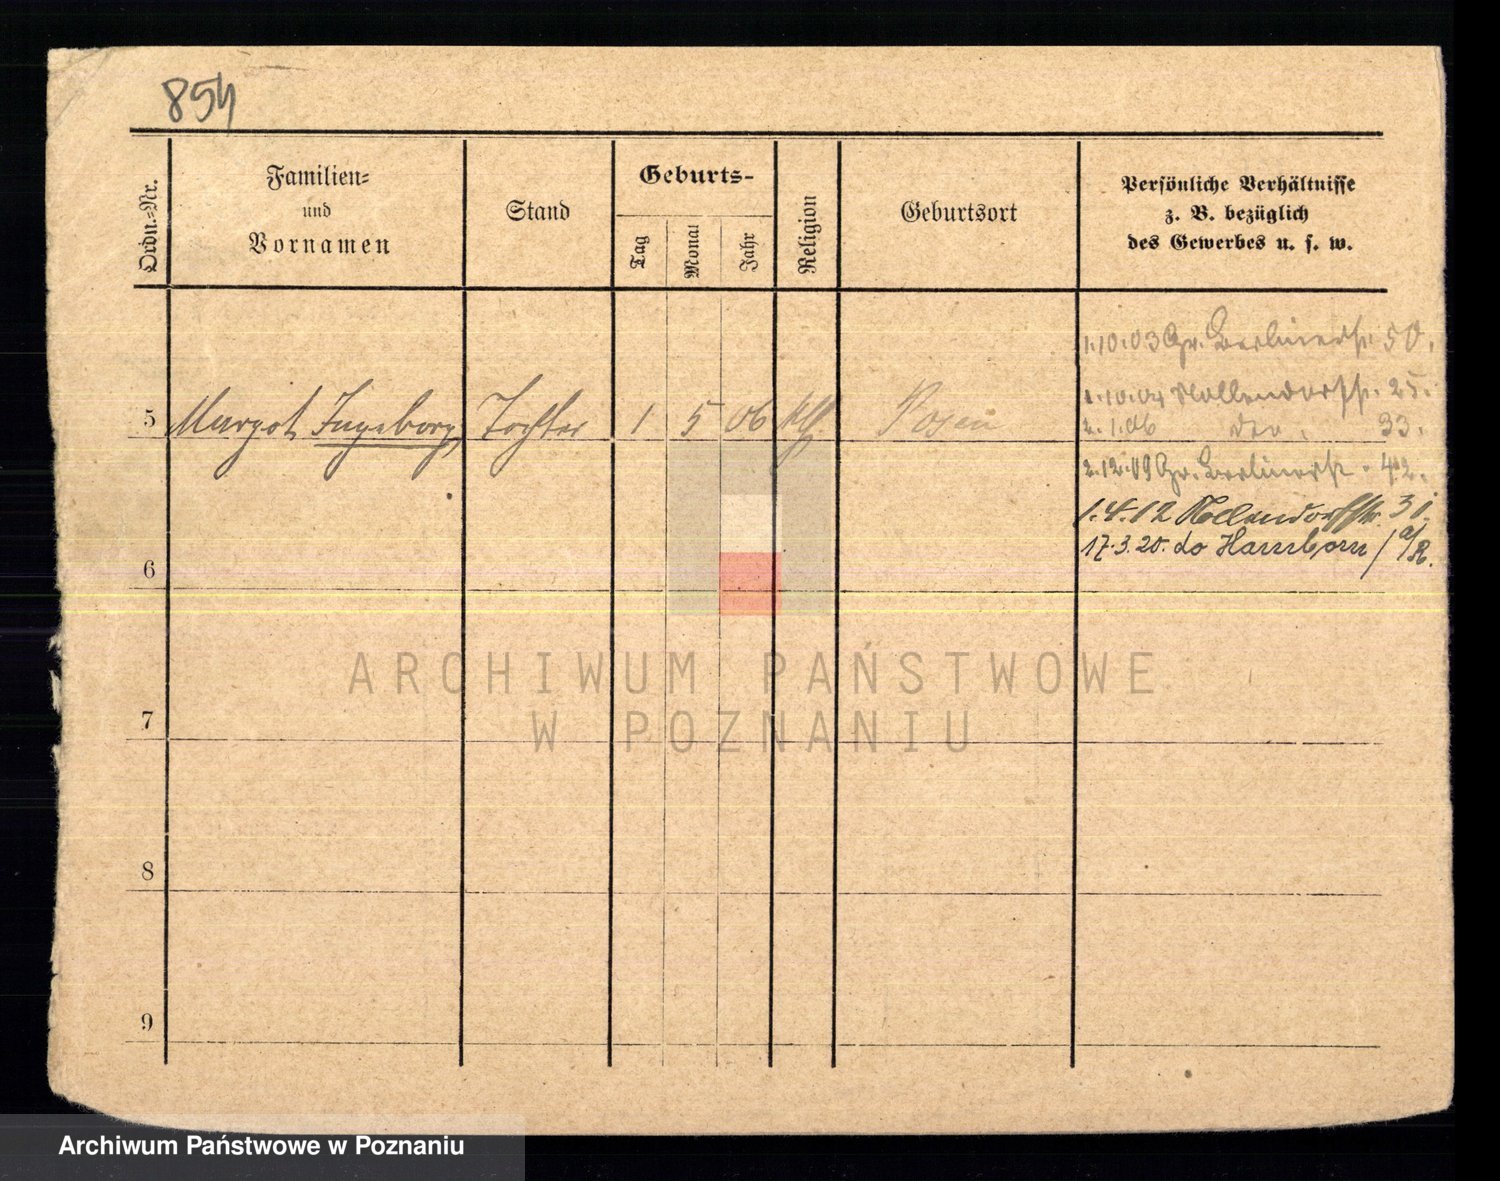 854
Ordn.-Nr.
Familien-
und
Vornamen
Stand
Geburts-
Tag
Monat
Jahr
Religion
Geburtsort
Persönliche Verhältnisse
z. B. bezüglich
des Gewerbes u. s. w.
1.10.03 Gr. Berlinerstr. 50.
1.10.04 Nollendorfstr. 25.
5 Margot Ingeborg Tochter 1 5 06 Posen
2.1.06 33.
2.12.09 Gr. Berlinerstr. 42.
1.4.12 31.
17.3.20. do Hamborn / a/R.
6
7
8
9
ARCHIWUM PAŃSTWOWE
W POZNANIU
Archiwum Państwowe w Poznaniu